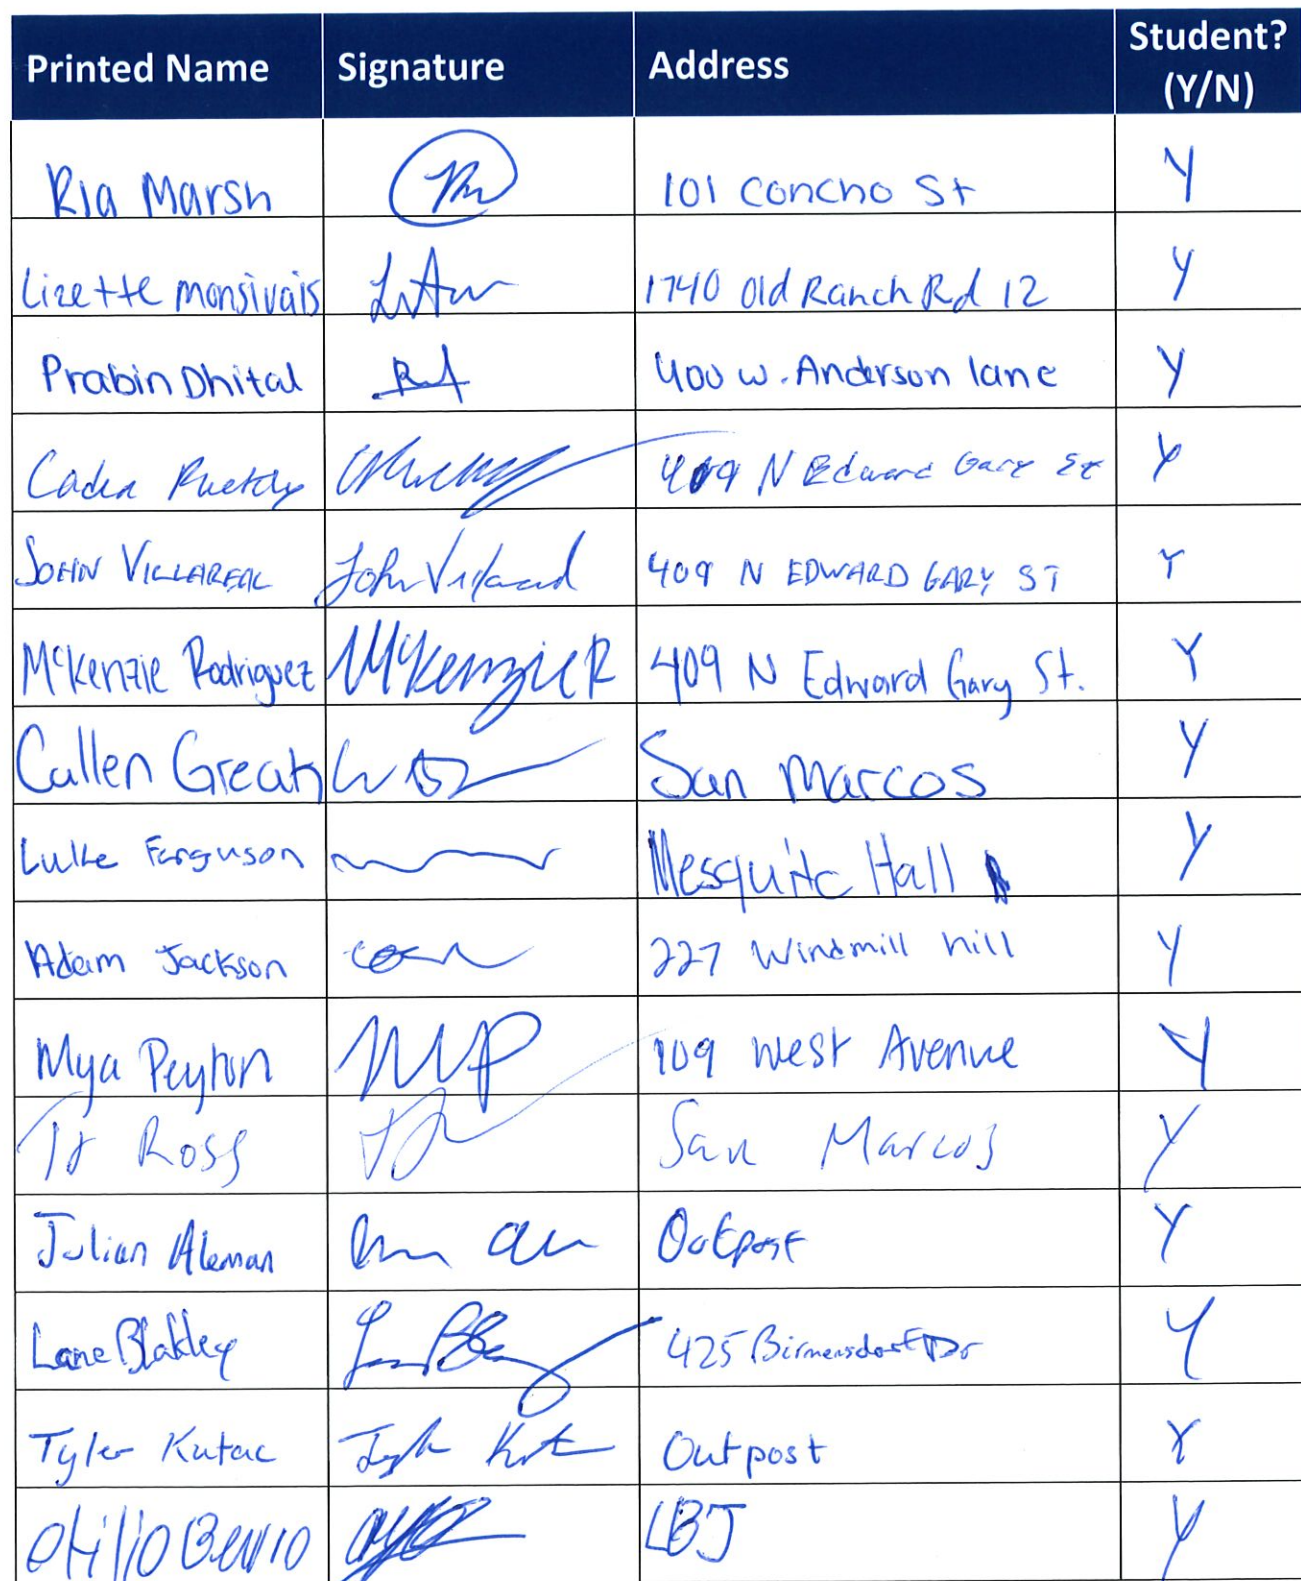 Printed Name Signature Address Student? (Y/N)
Ria Marsh 101 Concho St Y
Lizette monsivais 1740 Old Ranch Rd 12 Y
Prabin Dhital 400 w. Anderson lane Y
409 N Edward Gary St Y
JOHN VILLAREAL John Villareal 409 N EDWARD GARY ST Y
McKenzie Rodriguez McKenzie R 409 N Edward Gary St. Y
Cullen Greak San Marcos Y
Luke Ferguson Mesquite Hall Y
Adam Jackson 227 Windmill hill Y
Mya Peyton MP 109 West Avenue Y
Ross San Marcos Y
Julian Aleman Outpost Y
Lane Blakley 425 Birmensdorf Dr Y
Tyler Kutac Outpost Y
LBJ Y